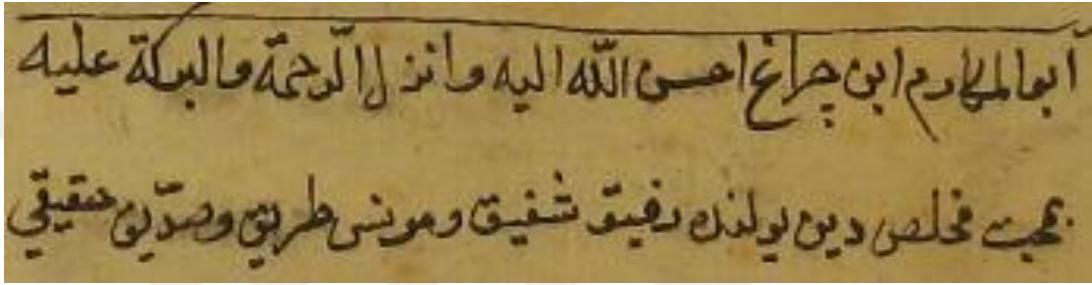 ابو المكارم ابن چراغ احسن اللّه اليه وانزل الرّحمة والبركة عليه
محب مخلص دين يولنده رفيق شفيق ومونس طريق وصدّيق حقيقي